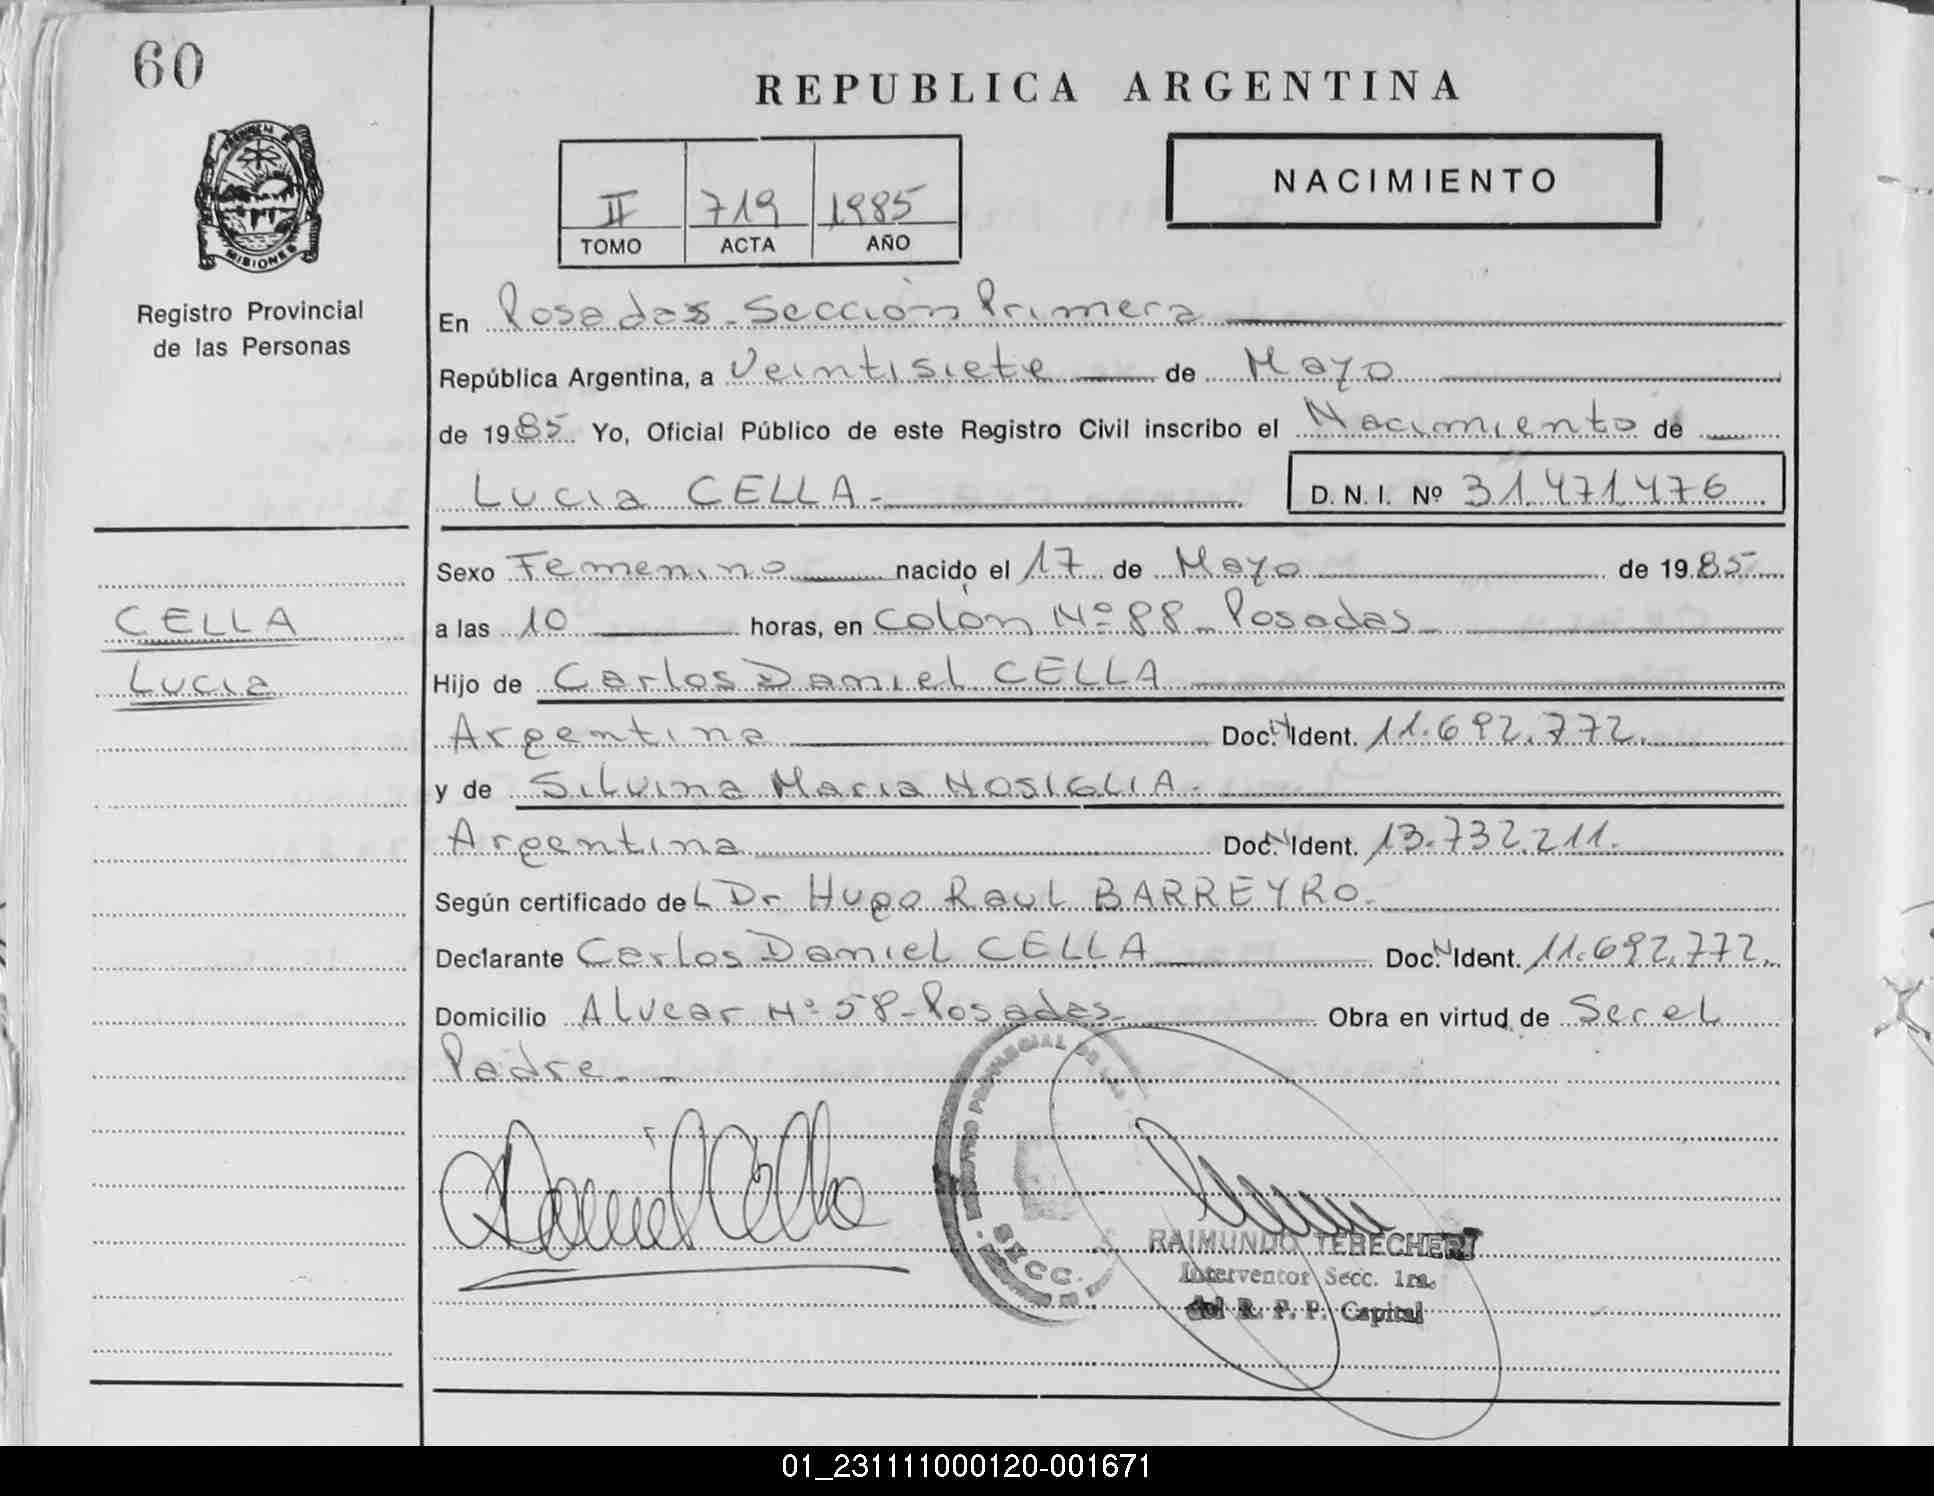 60
REPUBLICA ARGENTINA
PROVINCIA DE
MISIONES
NACIMIENTO
II 719 1985
TOMO ACTA AÑO
Registro Provincial
de las Personas
En Posadas - Sección Primera
República Argentina, a Veintisiete de Mayo
de 1985 Yo, Oficial Público de este Registro Civil inscribo el Nacimiento de
Lucia CELLA.- D. N. I. Nº 31.471.476
Sexo Femenino nacido el 17 de Mayo de 1985
CELLA
a las 10 horas, en Colón Nº 88 - Posadas
Lucia
Hijo de Carlos Daniel CELLA
Argentina Doc. N Ident. 11.692.772.
y de Silvina Maria NOSIGLIA.
Argentina Doc. N Ident. 13.732.211.
Según certificado del Dr Hugo Raul BARREYRO.
Declarante Carlos Daniel CELLA Doc. N Ident. 11.692.772.
Domicilio Alvear Nº 58 - Posadas Obra en virtud de Ser el
Padre.
REGISTRO PROVINCIAL DE LAS
SECC.
Daniel Cella
RAIMUNDO TERECHERT
Interventor Secc. 1ra.
del R. P. P. Capital
01_231111000120-001671